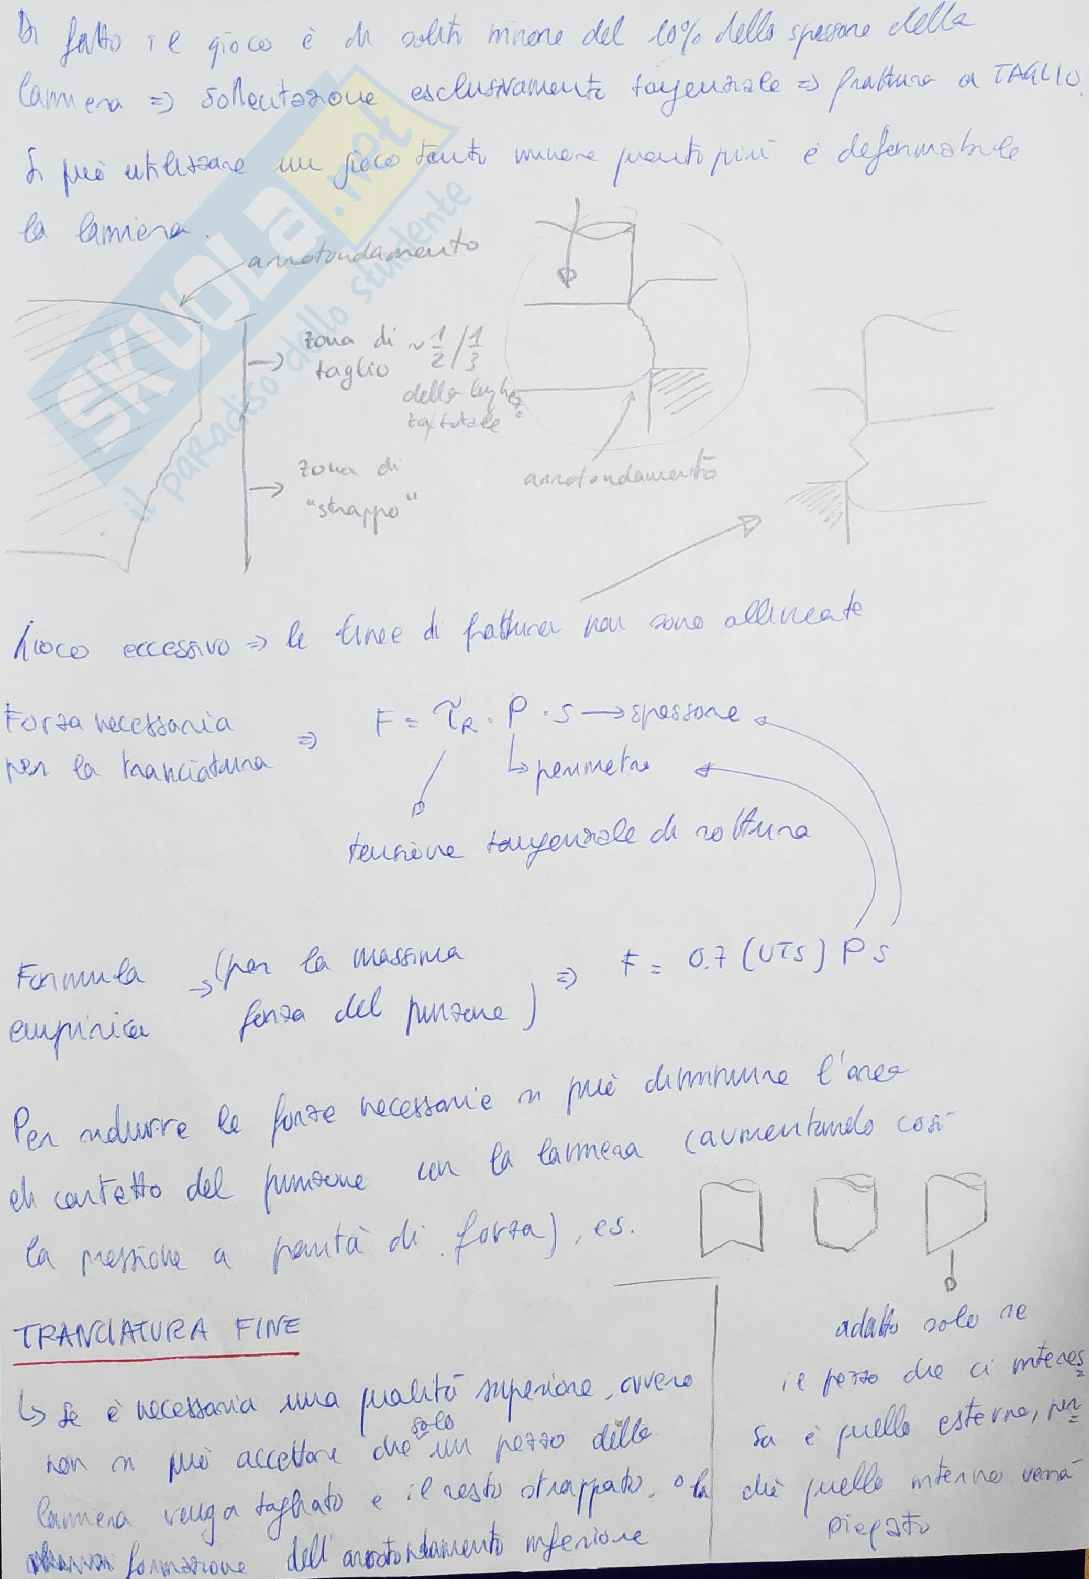 Di fatto il gioco è di solito minore del 10% dello spessore della
lamiera => sollecitazione esclusivamente tangenziale => frattura a TAGLIO.
Si può utilizzare un gioco tanto minore quanto più è deformabile
la lamiera.
arrotondamento
zona di taglio ~ 1/2 / 1/3
della lunghez=
za totale
zona di
"strappo"
arrotondamento
SKUOLA.net
il paradiso dello studente
Gioco eccessivo => le linee di frattura non sono allineate
Forza necessaria
per la tranciatura => F = τR · P · s → spessore
↳ perimetro
tensione tangenziale di rottura
Formula → (per la massima
empirica forza del punzone) => F = 0.7 (UTS) P s
Per ridurre le forze necessarie si può diminuire l'area
di contatto del punzone con la lamiera (aumentando così
la pressione a parità di forza), es.
adatto solo se
il pezzo che ci interes=
sa è quello esterno, per=
chè quello interno verrà
piegato
TRANCIATURA FINE
↳ Se è necessaria una qualità superiore, ovvero
non si può accettare che solo un pezzo della
lamiera venga tagliato e il resto strappato, o la
formazione dell'arrotondamento inferiore